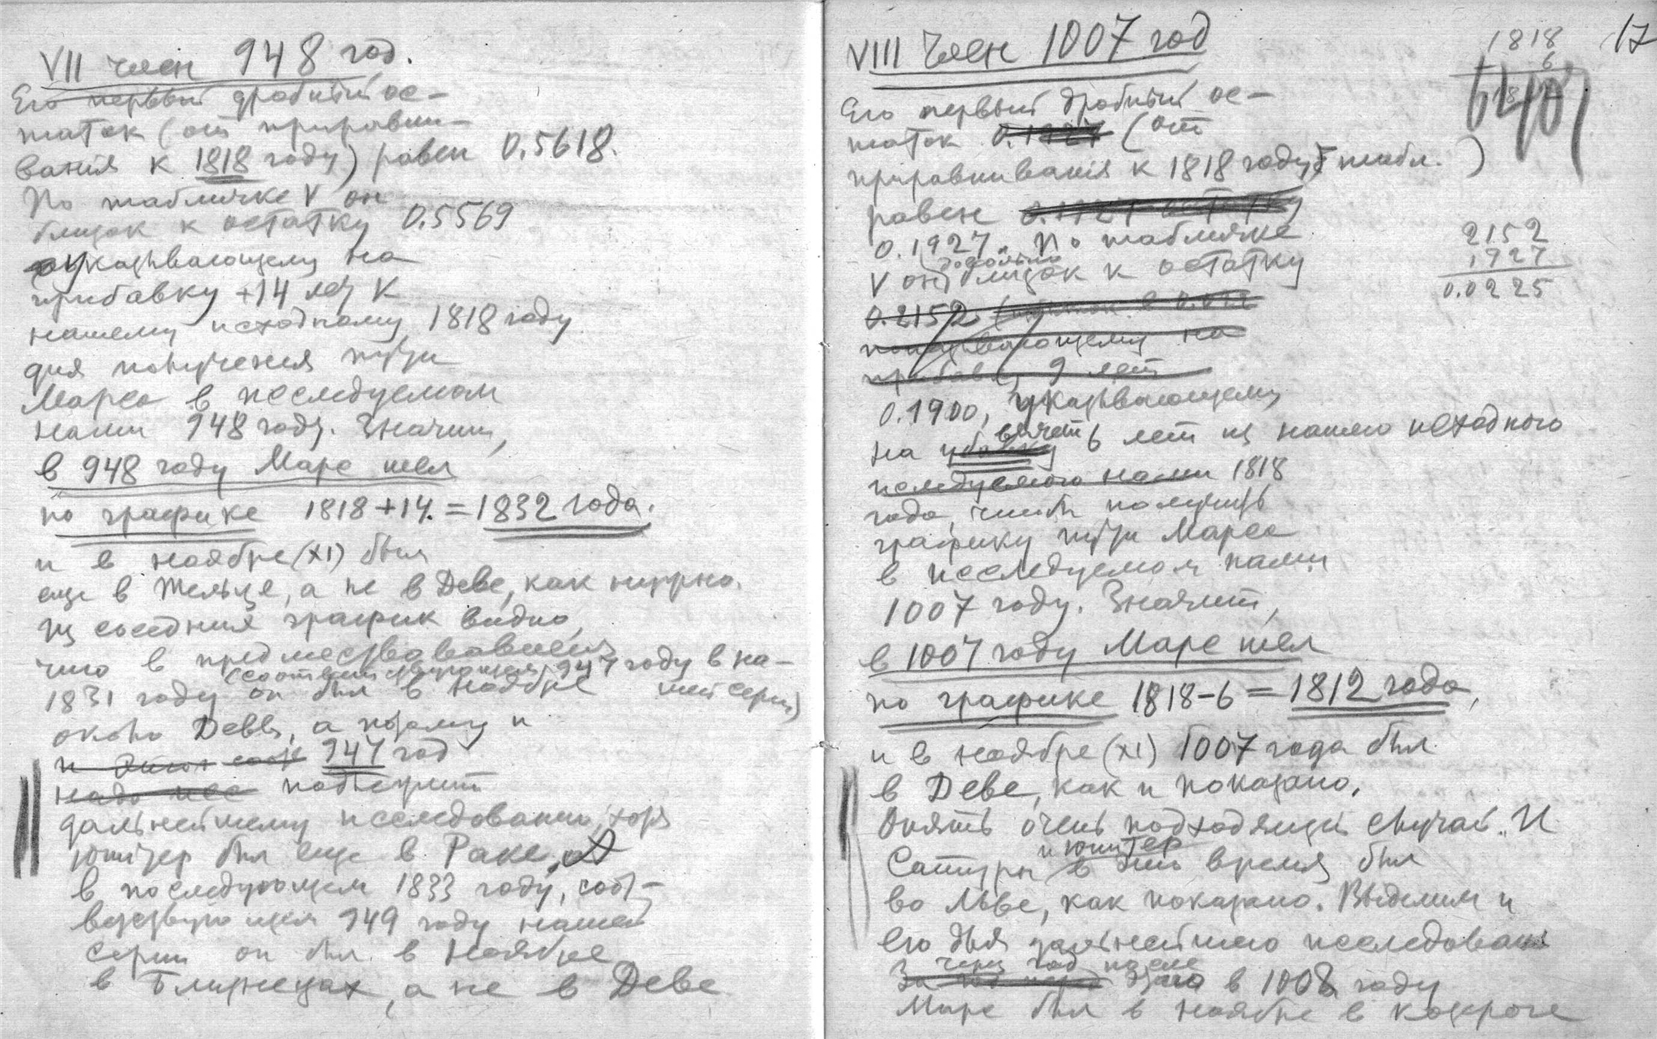 VII член 948 год.
Его первый дробный ос-
таток (от приравни-
вания к 1818 году) равен 0.5618.
По табличке V он
близок к остатку 0.5569
указывающему на
прибавку +14 лет к
нашему исходному 1818 году
для получения пути
Марса в исследуемом
нами 948 году. Значит,
в 948 году Марс шел
по графике 1818+14 = 1832 года.
и в ноябре (XI) был
еще в Тельце, а не в Деве, как нужно.
Из соседних график видно,
что в предшествовавшем
(соответствующем 947 году в на-
шей серии)
1831 году он был в ноябре
около Девы, а потому и
947 год
подлежит
дальнейшему исследованию, хотя
Юпитер был еще в Раке, а
в последующем 1833 году, соот-
ветствующем 949 году нашей
серии он был в Ноябре
в Близнецах, а не в Деве
VIII Член 1007 год
17
1818
6
Его первый дробный ос-
таток 0.1927 (от
приравнивания к 1818 году, табл. )
равен
0.1927. По табличке
V он довольно близок к остатку
0.2152
указывающему на
прибавку 9 лет
0.1900, указывающему
на вычет 6 лет из нашего исходного
исследуемого нами 1818
года, чтоб получить
графику пути Марса
в исследуемом нами
1007 году. Значит,
в 1007 году Марс шел
по графике 1818-6 = 1812 года,
и в ноябре (XI) 1007 года был
в Деве, как и показано.
Опять очень подходящий случай. И
Сатурн и Юпитер в это время был
во Льве, как показано. Выделим и
его для дальнейшего исследования
Через год после этого в 1008 году
Марс был в ноябре в Козероге
2152
1927
0.0225